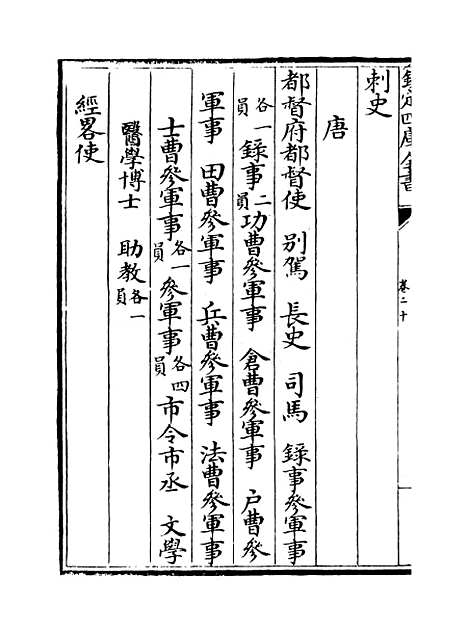 欽定四庫全書
卷二十
刺史
唐
都督府都督使 別駕 長史 司馬 録事參軍事
各一員録事二員功曹參軍事 倉曹參軍事 户曹參
軍事 田曹參軍事 兵曹參軍事 法曹參軍事
士曹參軍事各一員參軍事各四員市令市丞 文學
醫學博士 助教各一員
經畧使